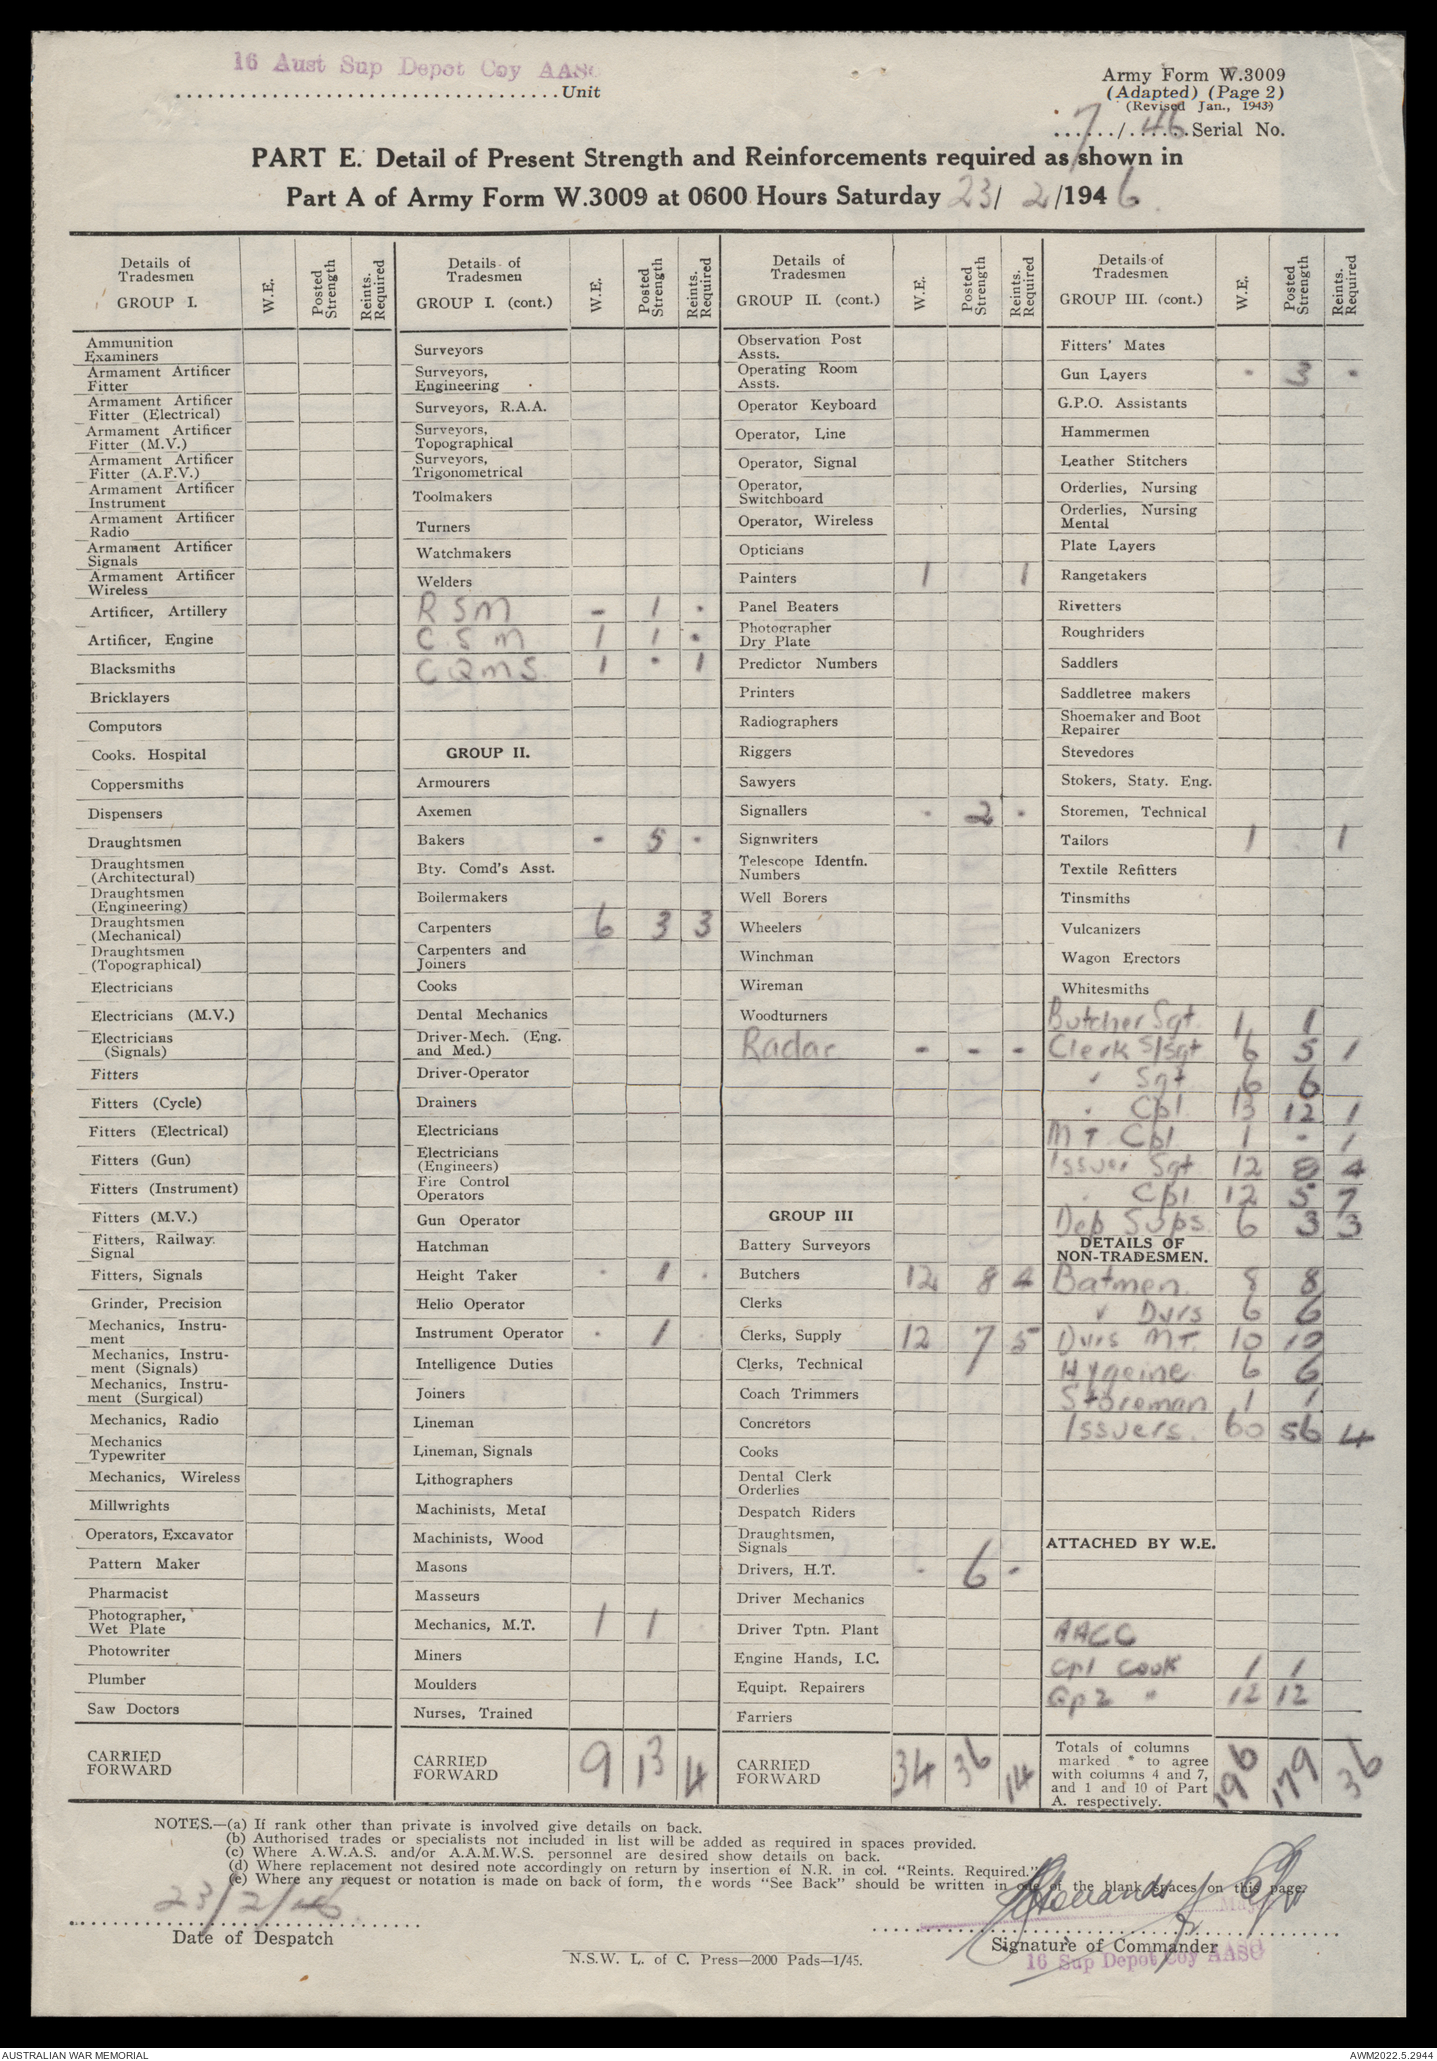 16 Aust Sup Depot Coy AASC
Unit
Army Form W.3009
(Adapted) (Page 2)
(Revised Jan., 1943)
7/46 Serial No.
PART E. Detail of Present Strength and Reinforcements required as shown in
Part A of Army Form W.3009 at 0600 Hours Saturday 23/ 2 /1946.
Details of Tradesmen GROUP I. W.E. Posted Strength Reints. Required
Ammunition Examiners
Armament Artificer Fitter
Armament Artificer Fitter (Electrical)
Armament Artificer Fitter (M.V.)
Armament Artificer Fitter (A.F.V.)
Armament Artificer Instrument
Armament Artificer Radio
Armament Artificer Signals
Armament Artificer Wireless
Artificer, Artillery
Artificer, Engine
Blacksmiths
Bricklayers
Computors
Cooks. Hospital
Coppersmiths
Dispensers
Draughtsmen
Draughtsmen (Architectural)
Draughtsmen (Engineering)
Draughtsmen (Mechanical)
Draughtsmen (Topographical)
Electricians
Electricians (M.V.)
Electricians (Signals)
Fitters
Fitters (Cycle)
Fitters (Electrical)
Fitters (Gun)
Fitters (Instrument)
Fitters (M.V.)
Fitters, Railway. Signal
Fitters, Signals
Grinder, Precision
Mechanics, Instru-
ment
Mechanics, Instru-
ment (Signals)
Mechanics, Instru-
ment (Surgical)
Mechanics, Radio
Mechanics Typewriter
Mechanics, Wireless
Millwrights
Operators, Excavator
Pattern Maker
Pharmacist
Photographer, Wet Plate
Photowriter
Plumber
Saw Doctors
CARRIED FORWARD
Details of Tradesmen GROUP I. (cont.) W.E. Posted Strength Reints. Required
Surveyors
Surveyors, Engineering
Surveyors, R.A.A.
Surveyors, Topographical
Surveyors, Trigonometrical
Toolmakers
Turners
Watchmakers
Welders
RSM - 1 .
CSM 1 1 .
CQMS. 1 . 1
GROUP II.
Armourers
Axemen
Bakers - 5 -
Bty. Comd's Asst.
Boilermakers
Carpenters 6 3 3
Carpenters and Joiners
Cooks
Dental Mechanics
Driver-Mech. (Eng. and Med.)
Driver-Operator
Drainers
Electricians
Electricians (Engineers)
Fire Control Operators
Gun Operator
Hatchman
Height Taker . 1 .
Helio Operator
Instrument Operator . 1 .
Intelligence Duties
Joiners
Lineman
Lineman, Signals
Lithographers
Machinists, Metal
Machinists, Wood
Masons
Masseurs
Mechanics, M.T. 1 1
Miners
Moulders
Nurses, Trained
CARRIED FORWARD 9 13 4
Details of Tradesmen GROUP II. (cont.) W.E. Posted Strength Reints. Required
Observation Post Assts.
Operating Room Assts.
Operator Keyboard
Operator, Line
Operator, Signal
Operator, Switchboard
Operator, Wireless
Opticians
Painters 1 1
Panel Beaters
Photographer Dry Plate
Predictor Numbers
Printers
Radiographers
Riggers
Sawyers
Signallers - 2 .
Signwriters
Telescope Identfn. Numbers
Well Borers
Wheelers
Winchman
Wireman
Woodturners
Radar - - -
GROUP III
Battery Surveyors
Butchers 12 8 4
Clerks
Clerks, Supply 12 7 5
Clerks, Technical
Coach Trimmers
Concretors
Cooks
Dental Clerk Orderlies
Despatch Riders
Draughtsmen, Signals
Drivers, H.T. - 6 -
Driver Mechanics
Driver Tptn. Plant
Engine Hands, I.C.
Equipt. Repairers
Farriers
CARRIED FORWARD 34 36 14
Details of Tradesmen GROUP III. (cont.) W.E. Posted Strength Reints. Required
Fitters' Mates
Gun Layers - 3 .
G.P.O. Assistants
Hammermen
Leather Stitchers
Orderlies, Nursing
Orderlies, Nursing Mental
Plate Layers
Rangetakers
Rivetters
Roughriders
Saddlers
Saddletree makers
Shoemaker and Boot Repairer
Stevedores
Stokers, Staty. Eng.
Storemen, Technical
Tailors 1 1
Textile Refitters
Tinsmiths
Vulcanizers
Wagon Erectors
Whitesmiths
Butcher Sgt. 1 1
Clerk S/Sgt 6 5 1
" Sgt 6 6
" Cpl. 13 12 1
MT Cpl 1 - 1
Issuer Sgt. 12 8 4
" Cpl 12 5 7
Dep Sups. 6 3 3
DETAILS OF NON-TRADESMEN.
Batmen. 8 8
" Dvrs 6 6
Dvrs MT. 10 10
Hygeine 6 6
Storeman 1 1
Issuers. 60 56 4
ATTACHED BY W.E.
AACC
Cpl Cook 1 1
Gp 2 " 12 12
Totals of columns
marked * to agree
with columns 4 and 7,
and 1 and 10 of Part
A. respectively. 196 179 36
NOTES.—(a) If rank other than private is involved give details on back.
(b) Authorised trades or specialists not included in list will be added as required in spaces provided.
(c) Where A.W.A.S. and/or A.A.M.W.S. personnel are desired show details on back.
(d) Where replacement not desired note accordingly on return by insertion of N.R. in col. "Reints. Required."
(e) Where any request or notation is made on back of form, the words "See Back" should be written in one of the blank spaces on this page.
23/2/46.
Date of Despatch
Signature of Commander
16 Sup Depot Coy AASC
N.S.W. L. of C. Press—2000 Pads—1/45.
AUSTRALIAN WAR MEMORIAL
AWM2022.5.2944